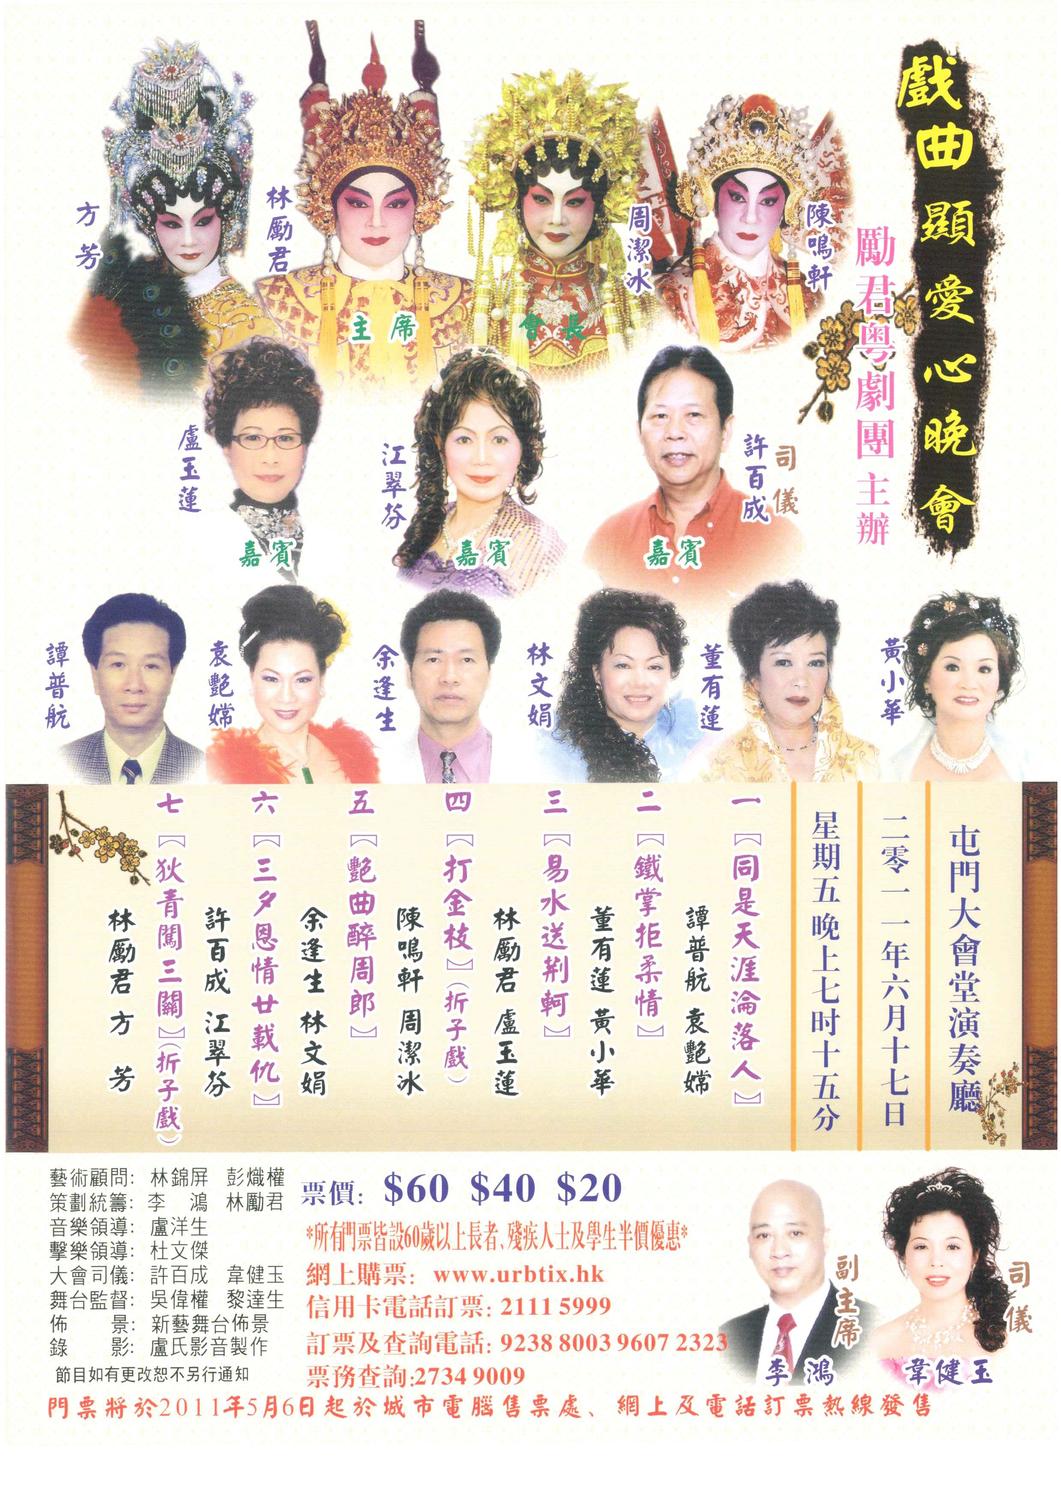 戲曲顯愛心晚會
勵君粵劇團 主辦
方芳
林勵君
主席
會長
周潔冰
陳鳴軒
盧玉蓮
嘉賓
江翠芬
嘉賓
許百成
司儀
嘉賓
譚普航
袁艷嫦
余逢生
林文娟
董有蓮
黃小華
屯門大會堂演奏廳
二零一一年六月十七日
星期五 晚上七时十五分
一 [同是天涯淪落人]
譚普航 袁艷嫦
二 [鐵掌拒柔情]
董有蓮 黃小華
三 [易水送荆軻]
林勵君 盧玉蓮
四 [打金枝](折子戲)
陳鳴軒 周潔冰
五 [艷曲醉周郎]
余逢生 林文娟
六 [三夕恩情廿載仇]
許百成 江翠芬
七 [狄青闖三關](折子戲)
林勵君 方 芳
藝術顧問: 林錦屏 彭熾權
策劃統籌: 李 鴻 林勵君
音樂領導: 盧洋生
擊樂領導: 杜文傑
大會司儀: 許百成 韋健玉
舞台監督: 吳偉權 黎達生
佈 景: 新藝舞台佈景
錄 影: 盧氏影音製作
節目如有更改恕不另行通知
票價: $60 $40 $20
*所有門票皆設60歲以上長者、殘疾人士及學生半價優惠*
網上購票: www.urbtix.hk
信用卡電話訂票: 2111 5999
訂票及查詢電話: 9238 8003 9607 2323
票務查詢:2734 9009
副主席
李鴻
司儀
韋健玉
門票將於2011年5月6日起於城市電腦售票處、網上及電話訂票熱線發售